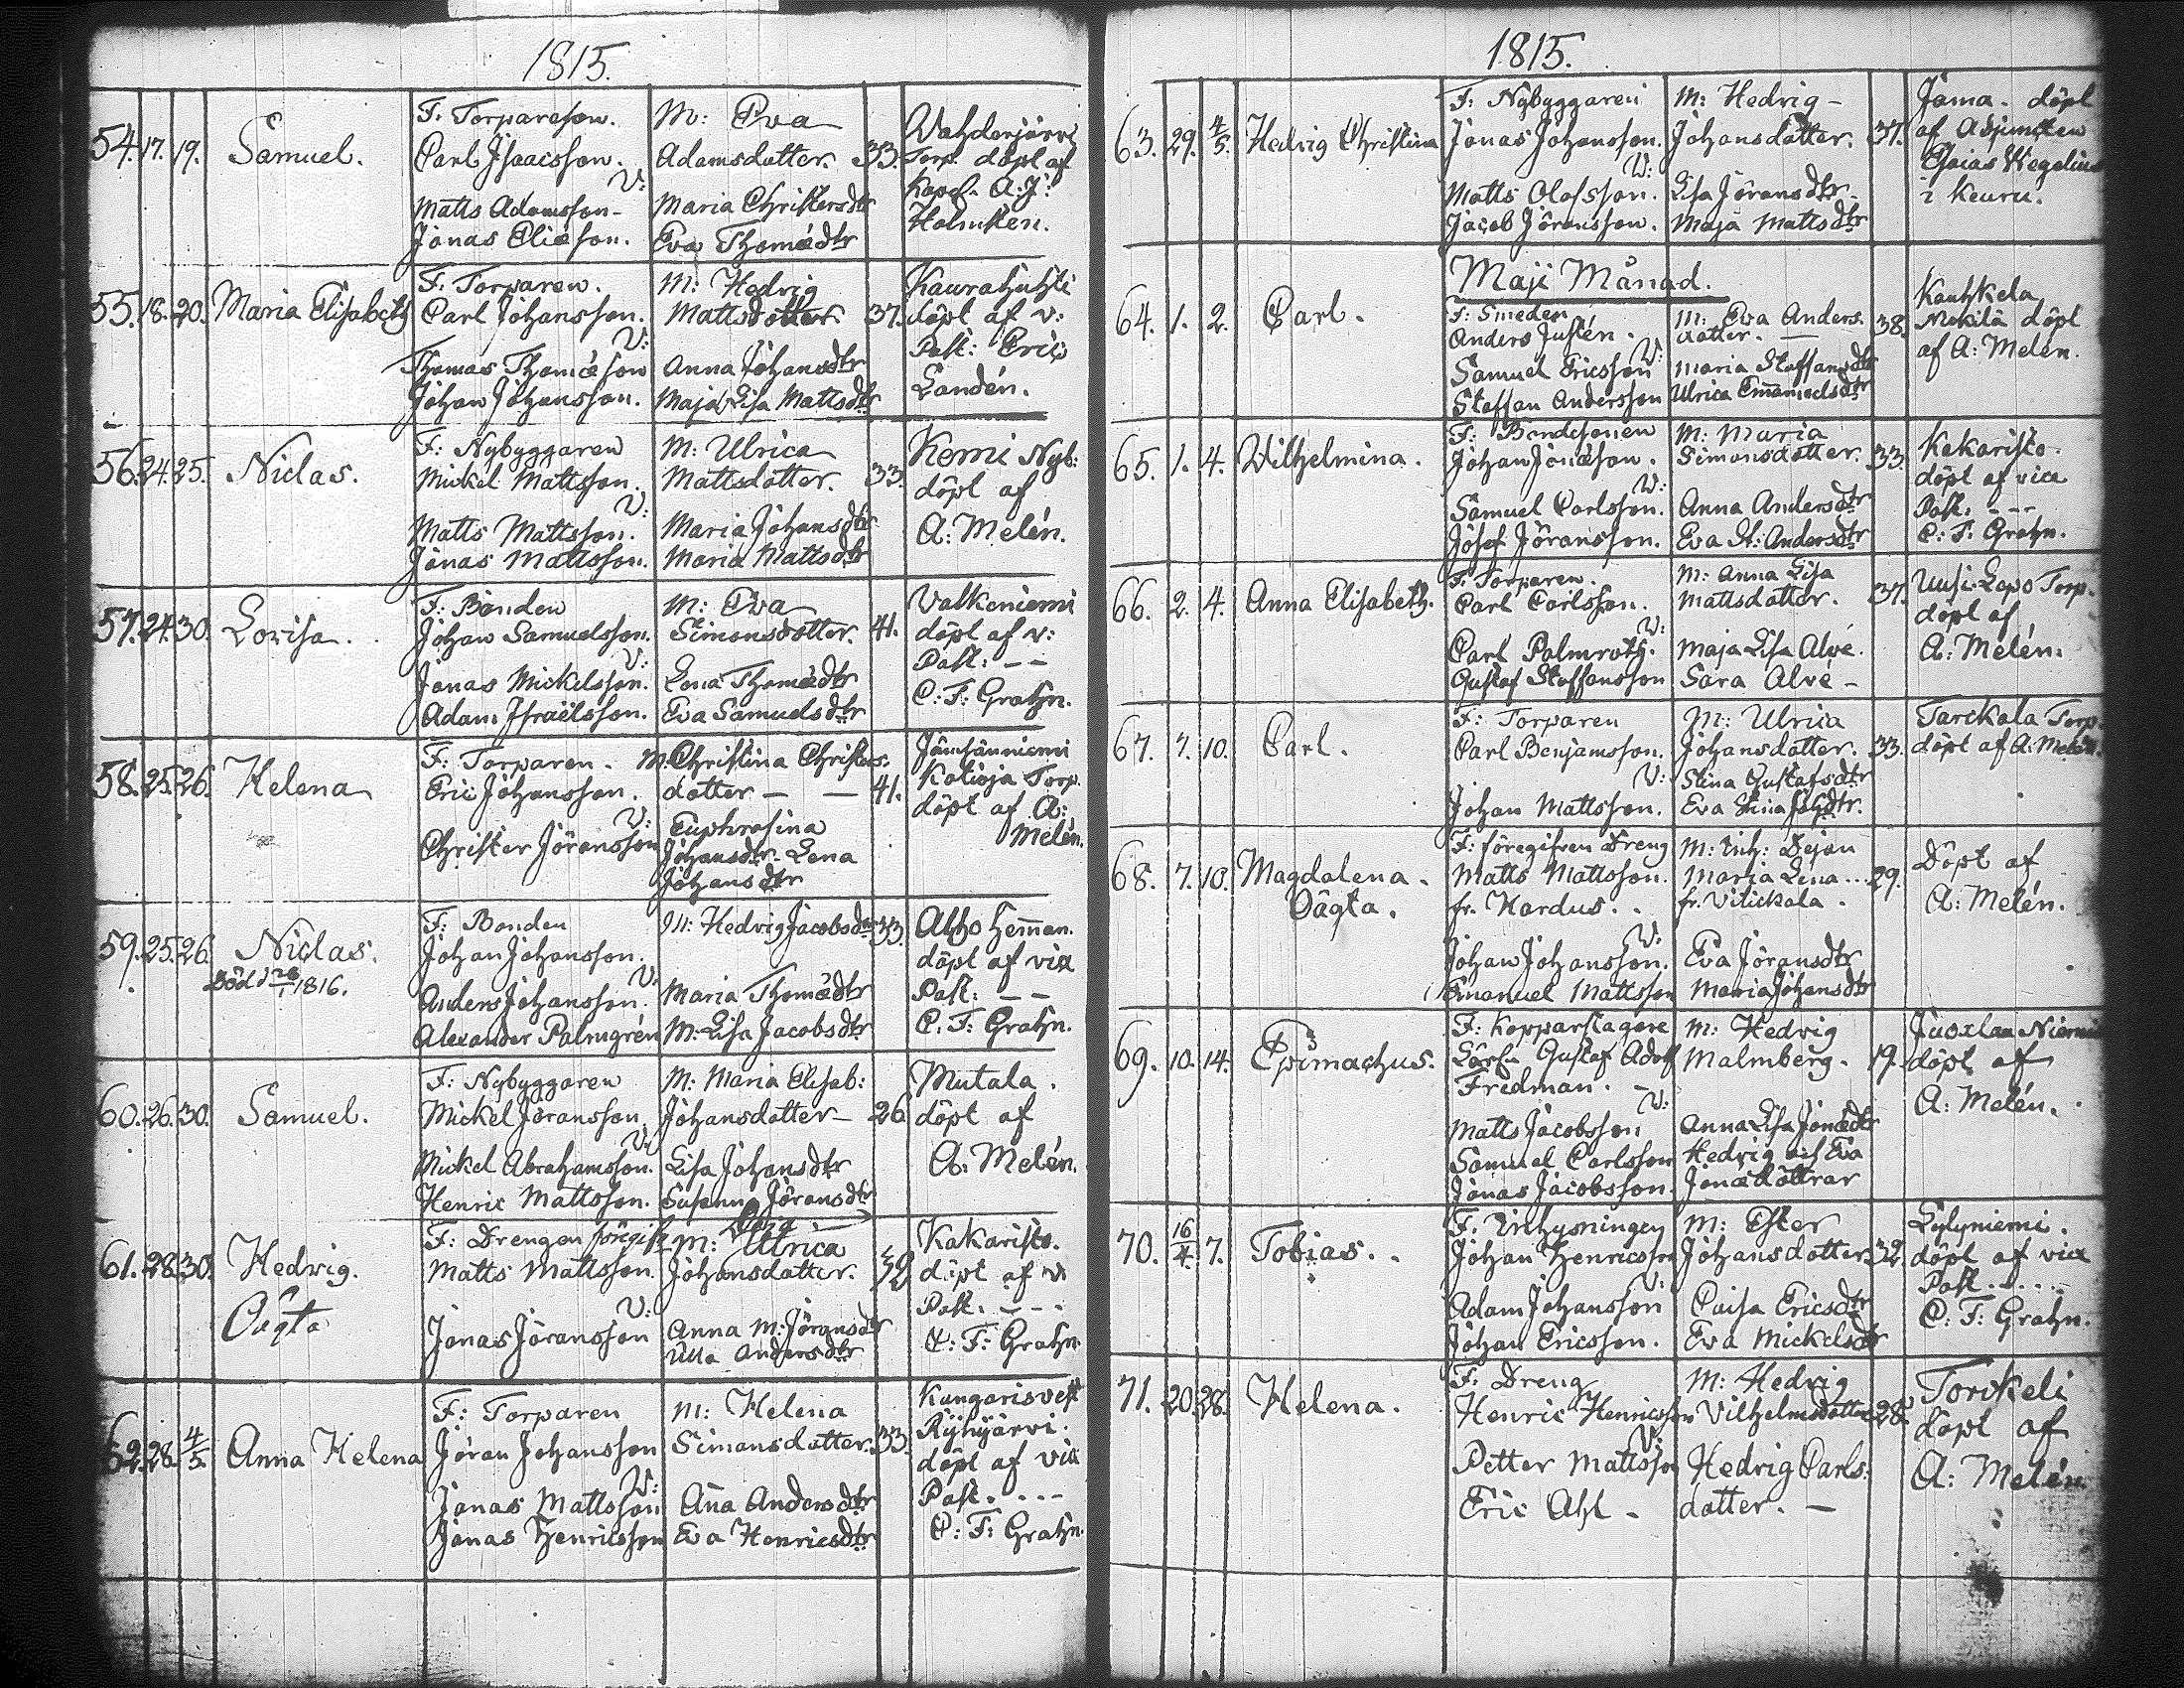 1815.
54. 17. 19. Samuel.
F: Torpareson. M: Eva
Carl Isaacsson. Adamsdotter. 33.
V:
Matts Adamsson- Maria Christersdtr
Jonas Eliæson. Eva Thomædtr
Torp. döpt af
Kapel: A: J:
Holmsten.
55. 18. 20. Maria Elisabeth
F: Torparen. M: Hedvig
Carl Johansson. Mattsdotter. 37.
V:
Thomas Thomæson Anna Johansdtr
Johan Johansson. Maja Lisa Mattsdtr
Kaurahuhti
döpt af v:
Past: Eric
Landén.
56. 24. 25. Niclas.
F: Nybyggaren M: Ulrica
Mickel Mattsson. Mattsdotter. 33.
V:
Matts Mattsson. Maria Johansdtr
Jonas Mattsson. Maria Mattsdtr
Kemi Nyb:
döpt af
A: Melén.
57. 24. 30. Lovisa.
F: Bonden M: Eva
Johan Samuelsson. Simonsdotter. 41.
V:
Jonas Mickelsson. Lena Thomædtr
Adam Israëlsson. Eva Samuelsdtr
Valkeniemi
döpt af v:
Past: - -
C: F: Grahn.
58. 25. 26. Helena
F: Torparen. M: Christina Christers-
Eric Johansson. dotter - - 41.
V:
Christer Jöransson Euphrosina
Johansdtr. Lena
Johansdtr
Jämsänniemi
Katioja Torp.
döpt af A:
Melén.
59. 25. 26. Niclas.
Död d 1816.
F: Bonden M: Hedvig Jacobsdtr 33.
Johan Johansson.
V:
Anders Johansson. Maria Thomædtr
Alexander Palmgrén M: Lisa Jacobsdtr
Alho Heman.
döpt af vice
Past: - -
C: F: Grahn.
60. 26. 30. Samuel.
F: Nybyggaren M: Maria Elisab:
Mickel Jöransson Johansdotter - 26
V:
Mickel Abrahamsson. Lisa Johansdtr
Henric Mattsson. Susanna Jöransdtr
Mutala.
döpt af
A: Melén.
61. 28. 30. Hedvig.
Oägta
F: Drengen M: Ulrica
Matts Mattsson. Johansdotter.
V:
Jonas Jöransson Anna M: Jöransdtr
Ulla Andersdtr
Kakaristo.
döpt af v
Past. - - -
C: F: Grahn.
62. 28. 4/5 Anna Helena
F: Torparen M: Helena
Jöran Johansson Simonsdotter. 33.
V:
Jonas Mattsson Anna Andersdtr
Jonas Henricsson Eva Henricsdtr
Kangarisvest
döpt af vice
Past. - - -
C: F: Grahn.
1815.
63. 29. 4/5. Hedvig Christina
F: Nybyggaren M: Hedvig -
Jonas Johansson. Johansdotter. 37.
V:
Matts Olofsson. Lisa Jöransdtr -
Jacob Jöransson. Maja Mattsdtr
Jama. döpt
af Adjuncten
Esaias Wegelius
i Keuru.
Maji Månad.
64. 1. 2. Carl.
F: Smeden M: Eva Anders-
Anders Justén. dotter. - 38.
V:
Samuel Ericsson Maria Staffansdtr
Staffan Andersson Ulrica Emanuelsdtr
Kauhkela
Mekilä döpt
af A: Melén.
65. 1. 4. Wilhelmina.
F: Bondesonen M: Maria
Johan Jonæson. Simonsdotter. 33.
V:
Samuel Carlsson. Anna Andersdtr
Josef Jöransson. Eva St: Andersdtr
Kakaristo.
döpt af vice
Past. - - -
C: F: Grahn.
66. 2. 4. Anna Elisabeth.
F: Torparen. M: Anna Lisa
Carl Carlsson. Mattsdotter. 37.
V:
Carl Palmroth. Maja Lisa Alvé.
Gustaf Staffansson Sara Alvé -
Uusi-Lapo Torp.
döpt af
A: Melén.
67. 7. 10. Carl.
F: Torparen M: Ulrica
Carl Benjamsson. Johansdotter. 33.
V: Stina Gustafsdtr
Johan Mattsson. Eva Stina Johdtr.
Tarckala Torp.
döpt af A: Melén.
68. 7. 10. Magdalena.
Oägta.
F: föregifven Dreng M: Inh: Dejan
Matts Mattsson. Maria Lena ... 29.
fr. Hardus. fr. Vitickala.
V:
Johan Johansson. Eva Jöransdtr
Emanuel Mattsson Maria Johansdtr
Döpt af
A: Melén.
69. 10. 14. Epimachus.
F: Kopparslagare M: Hedvig
Gustaf Adolf Malmberg. 19.
Fredman. -
V:
Matts Jacobsson Anna Lisa Jonædtr
Samuel Carlsson Hedvig och Eva
Jonas Jacobsson. Jonædöttrar
döpt af
A: Melén.
70. 16/4. 7. Tobias.
F: Inhysningen M: Ester
Johan Henricsson Johansdotter. 32.
V:
Adam Johansson Caisa Ericsdtr
Johan Ericsson. Eva Mickelsdtr
Lylyniemi.
döpt af vice
Past. - - -
C: F: Grahn.
71. 20. 28. Helena.
F: Dreng M: Hedvig
Henric Henricsson Vilhelmsdotter 28.
V:
Petter Mattsson Hedvig Carls-
Eric Ahl - dotter. -
Torckeli
döpt af
A: Melén.